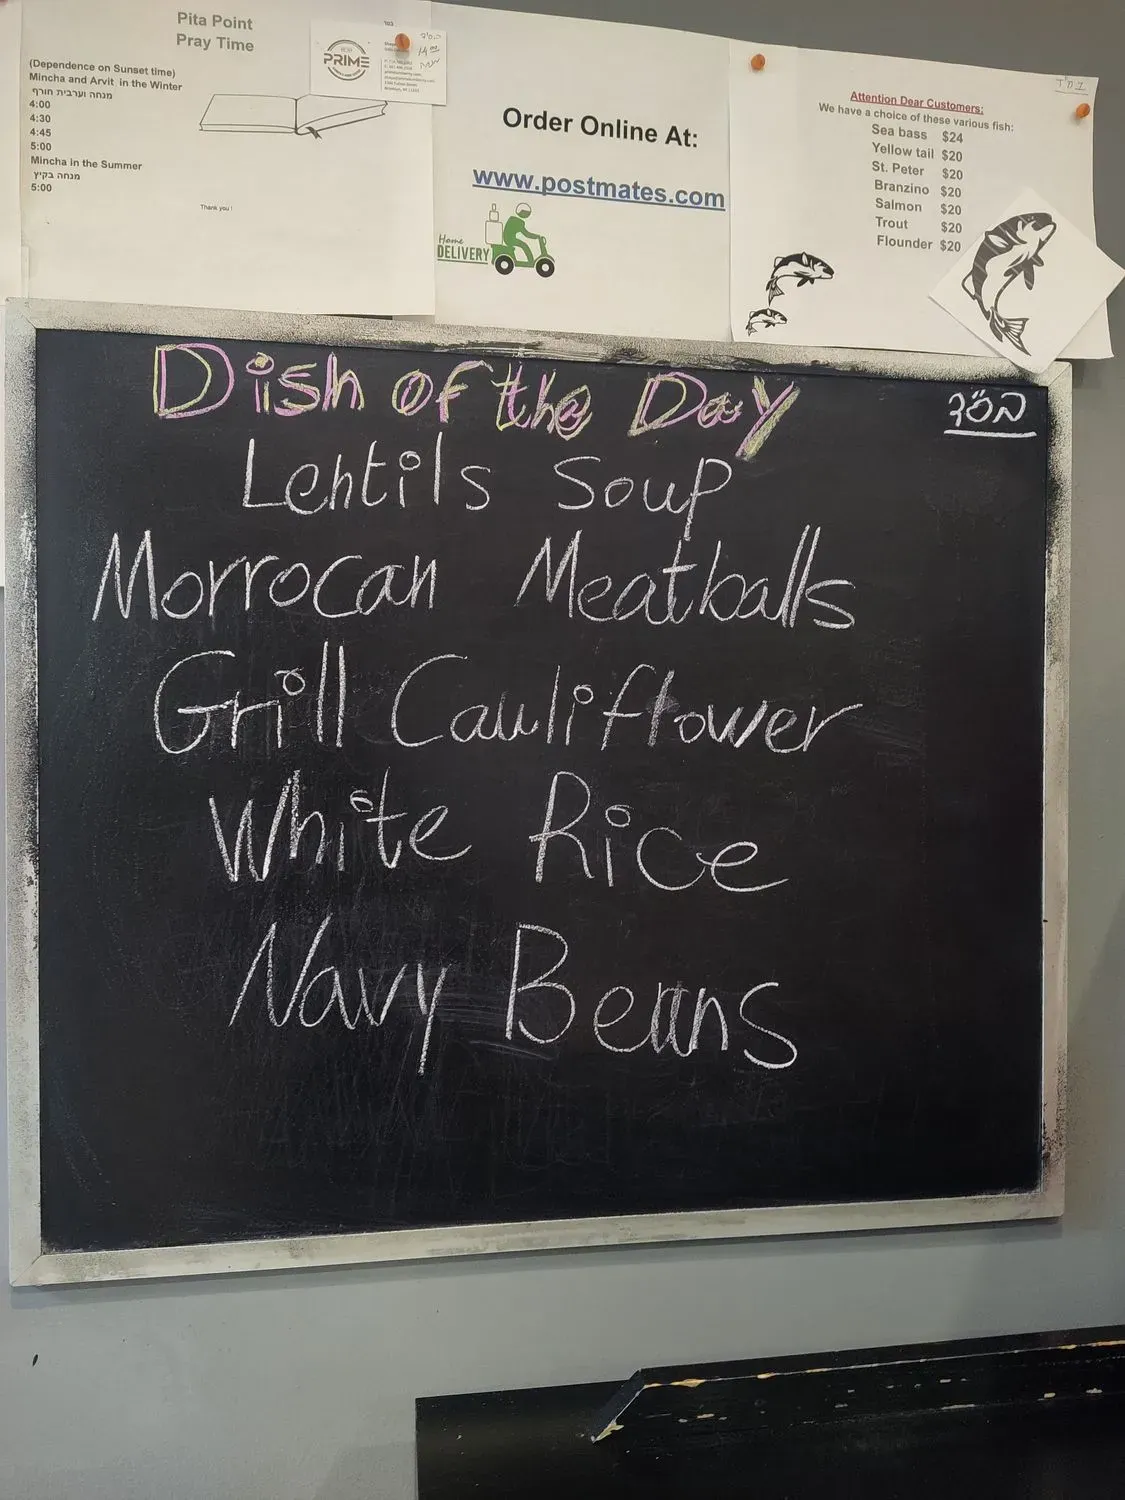 Pita Point
Pray Time
(Dependence on Sunset time)
Mincha and Arvit in the Winter
מנחה וערבית חורף
4:00
4:30
4:45
5:00
Mincha in the Summer
מנחה בקיץ
5:00
Thank you !
PRIME
Order Online At:
www.postmates.com
Home
DELIVERY
בס"ד
Attention Dear Customers:
We have a choice of these various fish:
Sea bass $24
Yellow tail $20
St. Peter $20
Branzino $20
Salmon $20
Trout $20
Flounder $20
Dish of the Day
בס"ד
Lentils Soup
Morrocan Meatballs
Grill Cauliflower
White Rice
Navy Beans